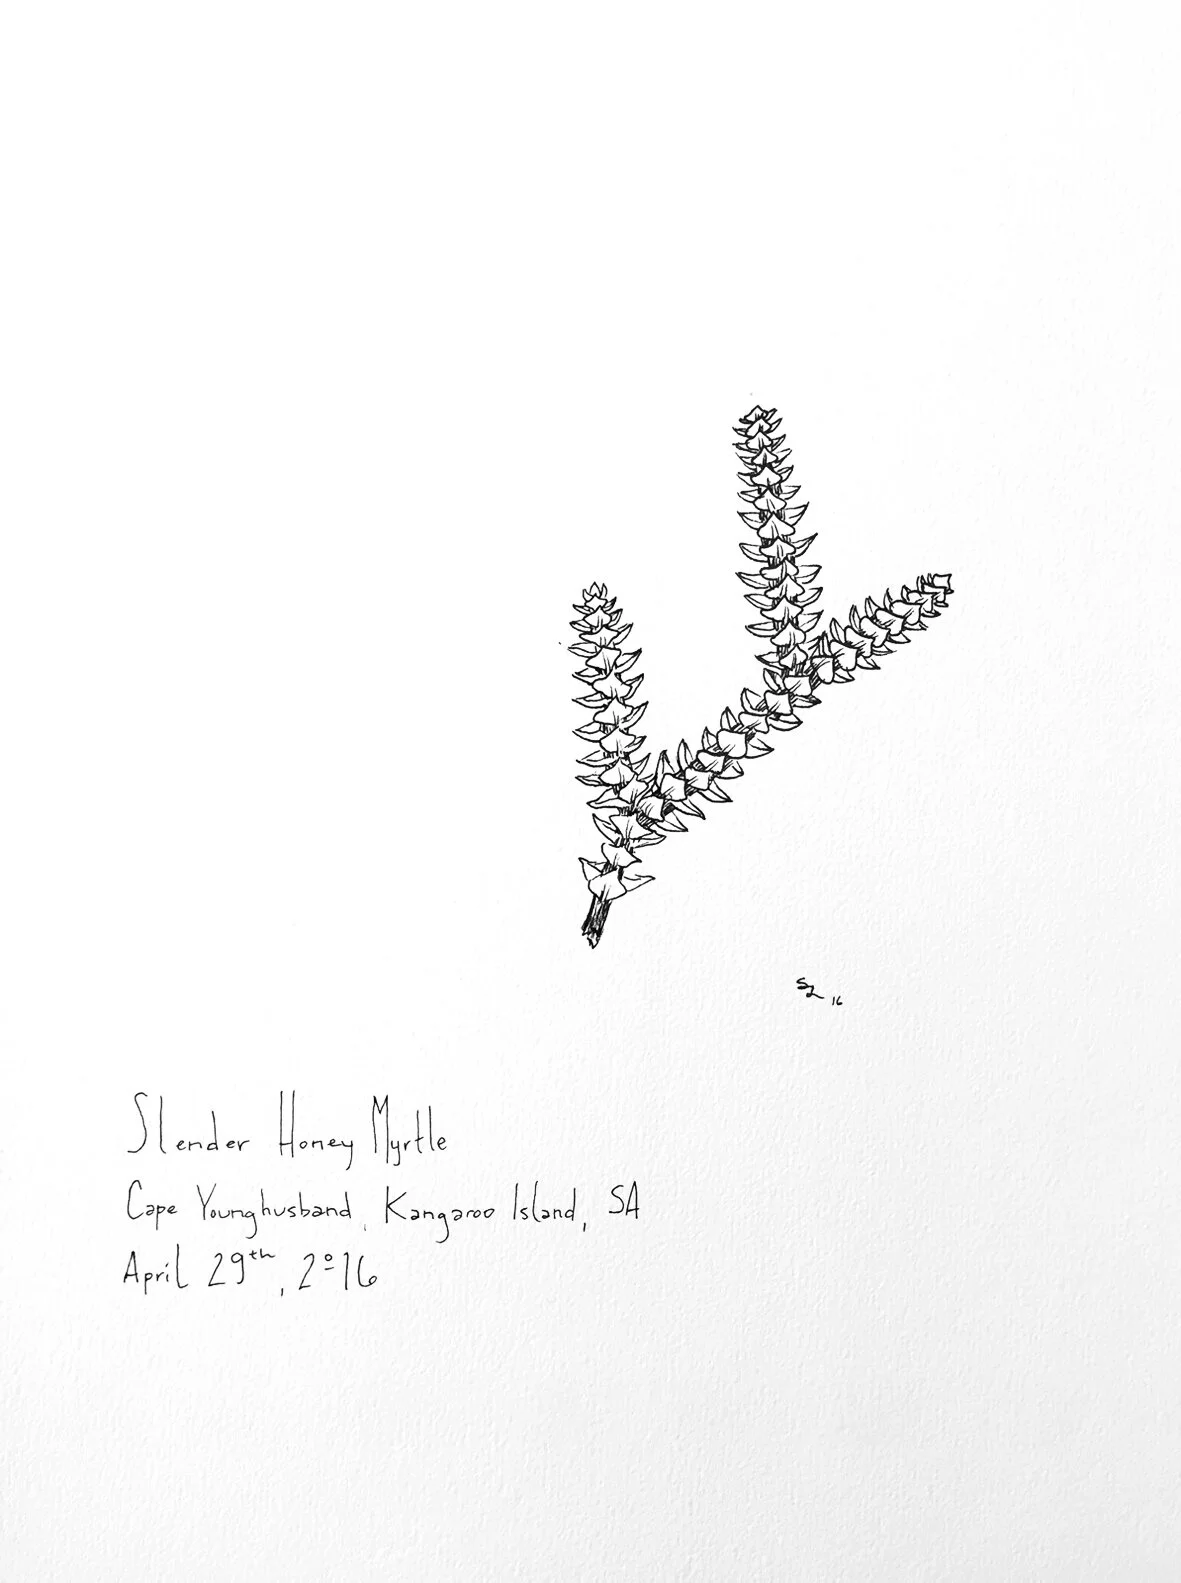 SL 16
Slender Honey Myrtle
Cape Younghusband, Kangaroo Island, SA
April 29th, 2016